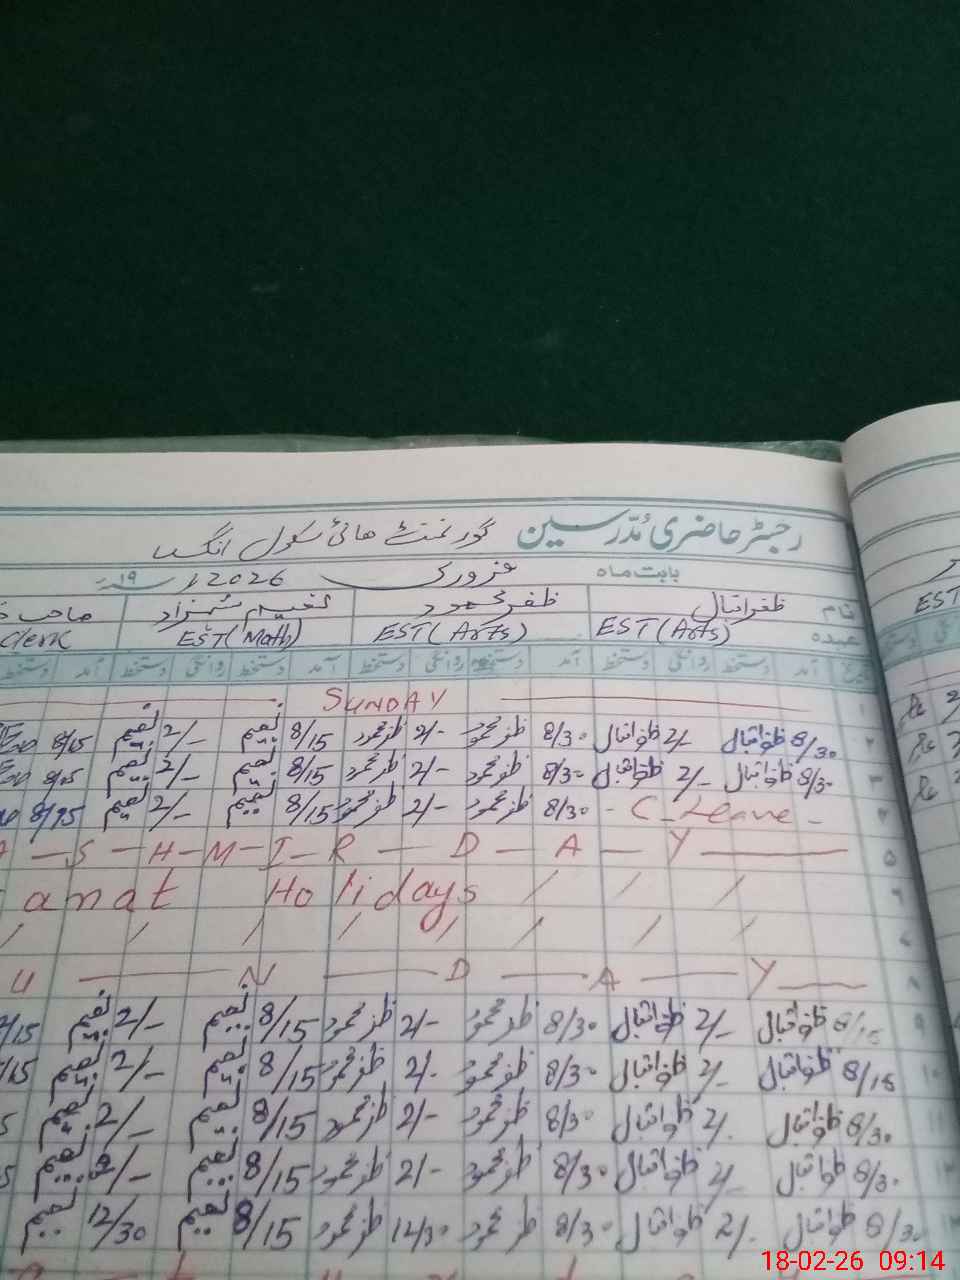 رجسٹر حاضری مُدرّسین گورنمنٹ ھائی سکول
بابت ماہ فروری 2026 / ۱۹
نام ظفر اقبال ظفر محمود نعیم شہزاد صاحب
عہدہ EST (Arts) EST (Arts) EST (Math) Clerk
تاریخ آمد دستخط روانگی دستخط آمد دستخط روانگی دستخط آمد دستخط روانگی دستخط آمد دستخط
۱ SUNDAY
۲ 8/30 ظفر اقبال 2/- ظفر اقبال 8/30 ظفر محمود 2/- ظفر محمود 8/15 نعیم 2/- نعیم 8/15
۳ 8/30 ظفر اقبال 2/- ظفر اقبال 8/30 ظفر محمود 2/- ظفر محمود 8/15 نعیم 2/- نعیم 8/15
۴ - C-Leave - 8/30 ظفر محمود 2/- ظفر محمود 8/15 نعیم 2/- نعیم
۵ A-S-H-M-I-R-D-A-Y
۶ amat Holidays / / /
۷ / / / / / / / /
۸ U-N-D-A-Y
۹ ظفر اقبال 2/- ظفر اقبال 8/30 ظفر محمود 2/- ظفر محمود 8/15 نعیم 2/- نعیم
۱۰ 8/15 ظفر اقبال 2/- ظفر اقبال 8/30 ظفر محمود 2/- ظفر محمود 8/15 نعیم 2/- نعیم
۱۱ 8/30 ظفر اقبال 2/- ظفر اقبال 8/30 ظفر محمود 2/- ظفر محمود 8/15 نعیم 2/- نعیم
۱۲ 8/30 ظفر اقبال 2/- ظفر اقبال 8/30 ظفر محمود 2/- ظفر محمود 8/15 نعیم 2/- نعیم
۱۳ 8/30 ظفر اقبال 2/- ظفر اقبال 8/30 ظفر محمود 12/30 ظفر محمود 8/15 نعیم 12/30 نعیم
EST
18-02-26 09:14